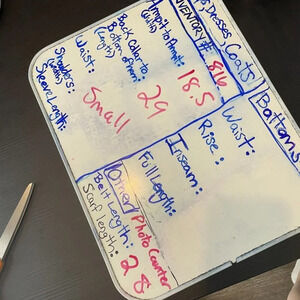 Dresses, Coats)
INVENTORY #: 816
Armpit to Armpit: 18.5
(width)
Back Collar to 29
Bottom of Hem:
(Length)
Waist: Small
Shoulders:
(width)
Sleeve Length:
Bottoms
Waist:
Rise:
Inseam:
Full Length:
Other/ Photo Counter
Belt Length: 28
Scarf Length: